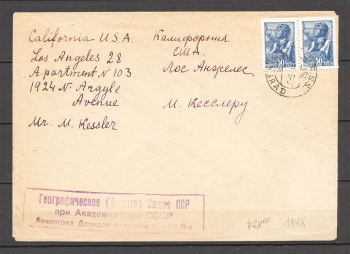 California U.S.A.
Los Angeles 28
Apartment N 103
1924 N. Argyle
Avenue
Mr. M. Kessler
Калифорния
США.
Лос Анжелес
М. Кесслеру
30
30
Географическое Союза ССР
при Академии Наук СССР
Ленинград
1948